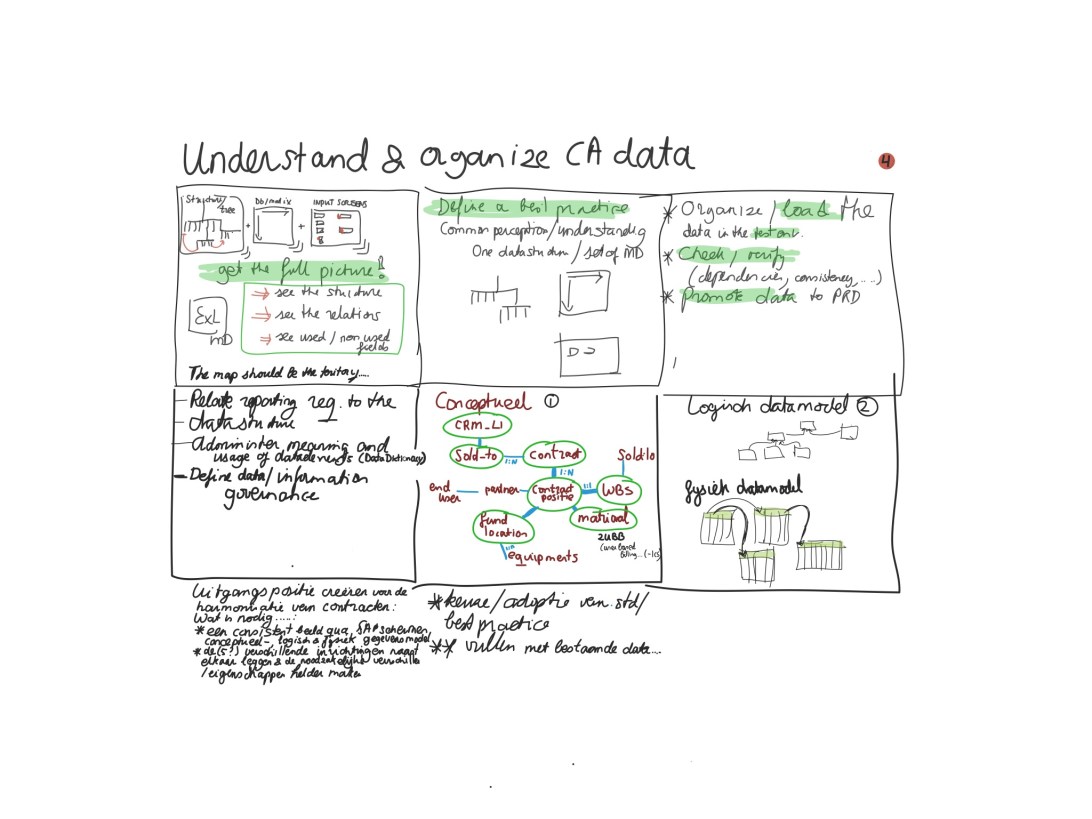 Understand & organize CA data
4
Structuur/
tree
Db/matix
INPUT SCREENS
+
+
get the full picture!
ExL
MD
⇒ see the structure
⇒ see the relations
⇒ see used / non used
fields
The map should be the
Define a best practise
Common perception/understanding
One datastructuur / set of MD
D
* Organize / load the
data in the test
* Check / verify
(dependencies, consistency,....)
* promote data to PRD
- Relate reporting req. to the
- datastructure
- Administer meaning and
usage of dataelements (Data Dictionary)
- Define data/information
governance
Conceptueel ①
CRM_LI
Sold-to
1:N
Contract
Sold to
1:N
end
user
partner
Contract
positie
1:1
WBS
fund
location
material
ZUBB
1:N
equipments
Logisch datamodel ②
fysiek datamodel
Uitgangspositie creëren voor de
harmonisatie van contracten:
Wat is nodig.....:
* een consistent beeld qua SAP schermen,
conceptueel- logisch & fysiek gegevensmodel
* de (5?) verschillende inrichtingen naast
elkaar leggen & de noodzakelijke verschillen
/eigenschappen helder maken
* keuze/adoptie van std/
best practice
** vullen met bestaande data...